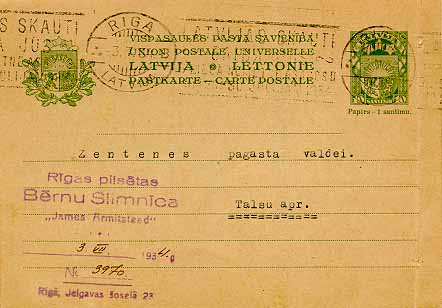 S SKAUTI
RIGA
LATV
VISPASAULES PASTA SAVIENĪBA
UNION POSTALE UNIVERSELLE
LATVIJA • LETTONIE
PASTKARTE — CARTE POSTALE
LATVIJA
10 SANTIMU 10
Papirs - 1 santims.
Zentenes pagasta valdei.
Rīgas pilsētas
Bērnu Slimnīca
„James Armitstead"
Talsu apr.
3. VII. 1934. g
Nr. 3970
Rīgā, Jelgavas šosejā 23